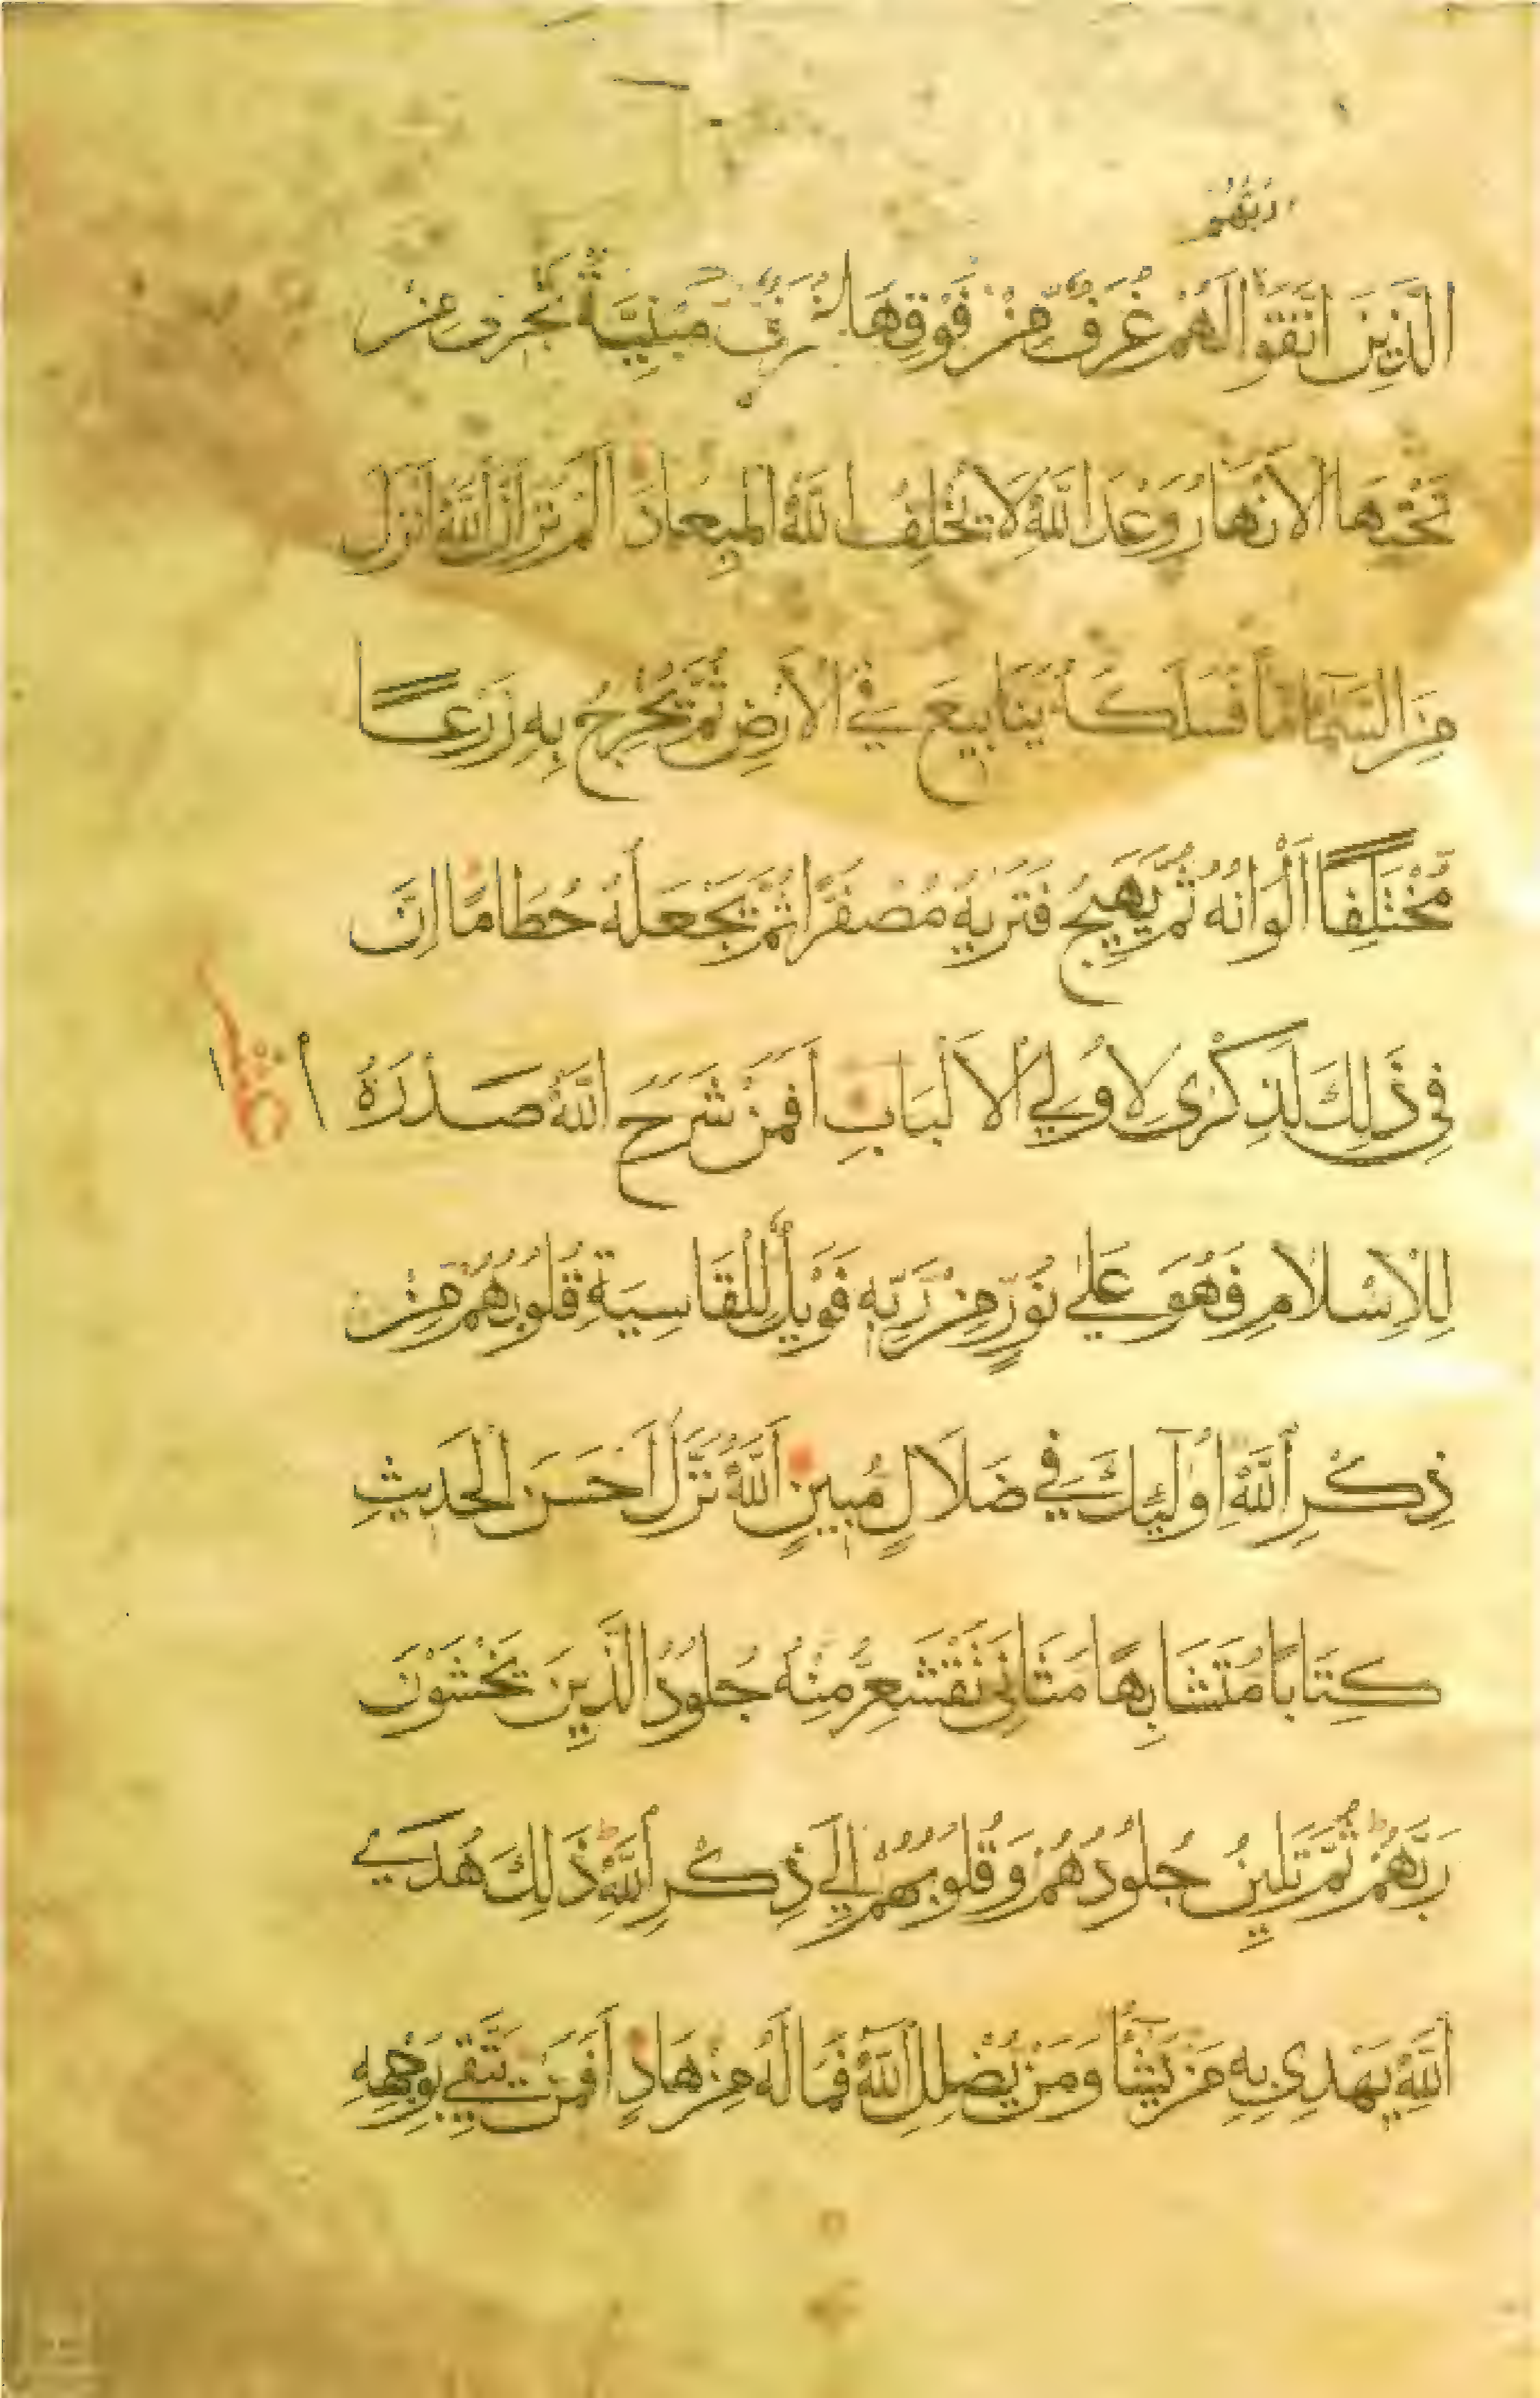 ربهم
الَّذِينَ اتَّقَوْا لَهُمْ غُرَفٌ مِّنْ فَوْقِهَا غُرَفٌ مَبْنِيَّةٌ تَجْرِي مِنْ
تَحْتِهَا الْأَنْهَارُ وَعْدَ اللَّهِ لَا يُخْلِفُ اللَّهُ الْمِيعَادَ أَلَمْ تَرَ أَنَّ اللَّهَ أَنْزَلَ
مِنَ السَّمَاءِ مَاءً فَسَلَكَهُ يَنَابِيعَ فِي الْأَرْضِ ثُمَّ يُخْرِجُ بِهِ زَرْعًا
مُّخْتَلِفًا أَلْوَانُهُ ثُمَّ يَهِيجُ فَتَرَيهُ مُصْفَرًّا ثُمَّ يَجْعَلُهُ حُطَامًا إِنَّ
فِي ذَلِكَ لَذِكْرَى لِأُولِي الْأَلْبَابِ أَفَمَنْ شَرَحَ اللَّهُ صَدْرَهُ
لِلْإِسْلَامِ فَهُوَ عَلَى نُورٍ مِنْ رَبِّهِ فَوَيْلٌ لِلْقَاسِيَةِ قُلُوبُهُمْ مِنْ
ذِكْرِ اللَّهِ أُولَئِكَ فِي ضَلَالٍ مُبِينٍ اللَّهُ نَزَّلَ أَحْسَنَ الْحَدِيثِ
كِتَابًا مُتَشَابِهًا مَثَانِيَ تَقْشَعِرُّ مِنْهُ جُلُودُ الَّذِينَ يَخْشَوْنَ
رَبَّهُمْ ثُمَّ تَلِينُ جُلُودُهُمْ وَقُلُوبُهُمْ إِلَى ذِكْرِ اللَّهِ ذَلِكَ هُدَى
اللَّهِ يَهْدِي بِهِ مَنْ يَشَاءُ وَمَنْ يُضْلِلِ اللَّهُ فَمَا لَهُ مِنْ هَادٍ أَفَمَنْ يَتَّقِي بِوَجْهِهِ